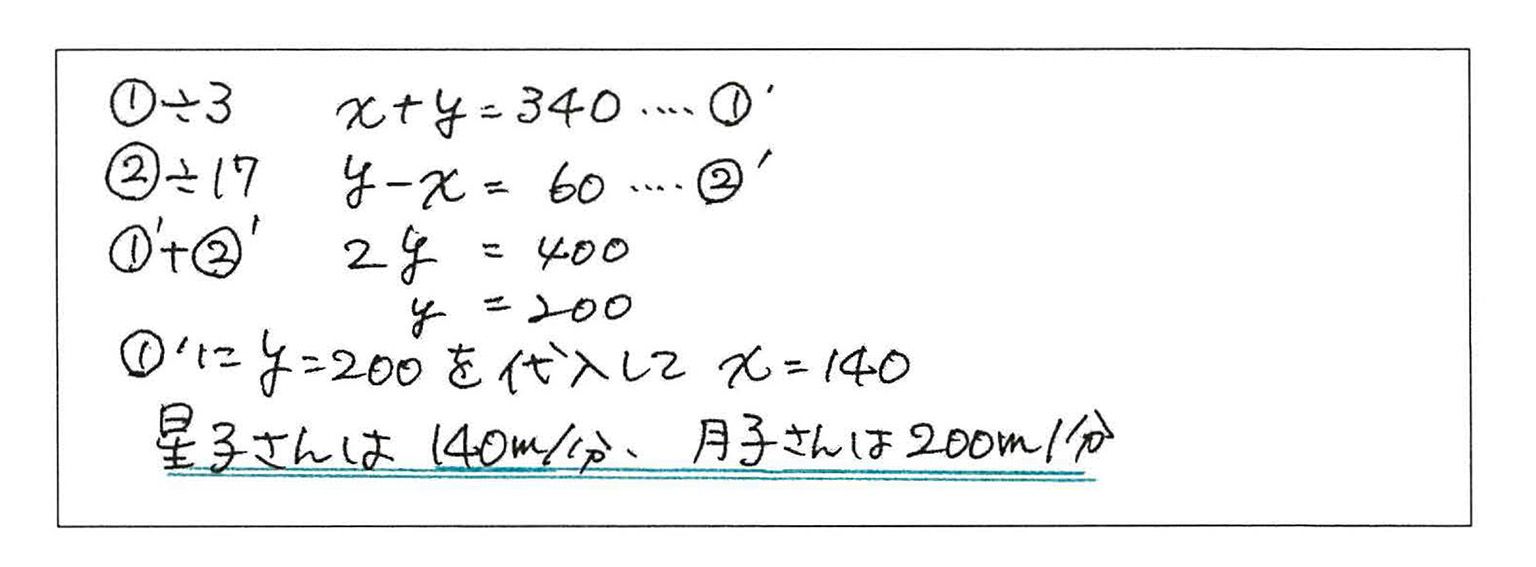 ①÷3 x+y=340 ‥‥①′
②÷17 y-x= 60 ‥‥②′
①′+②′ 2y = 400
y = 200
①′に y=200 を代入して x=140
星子さんは 140m/分、月子さんは200m/分